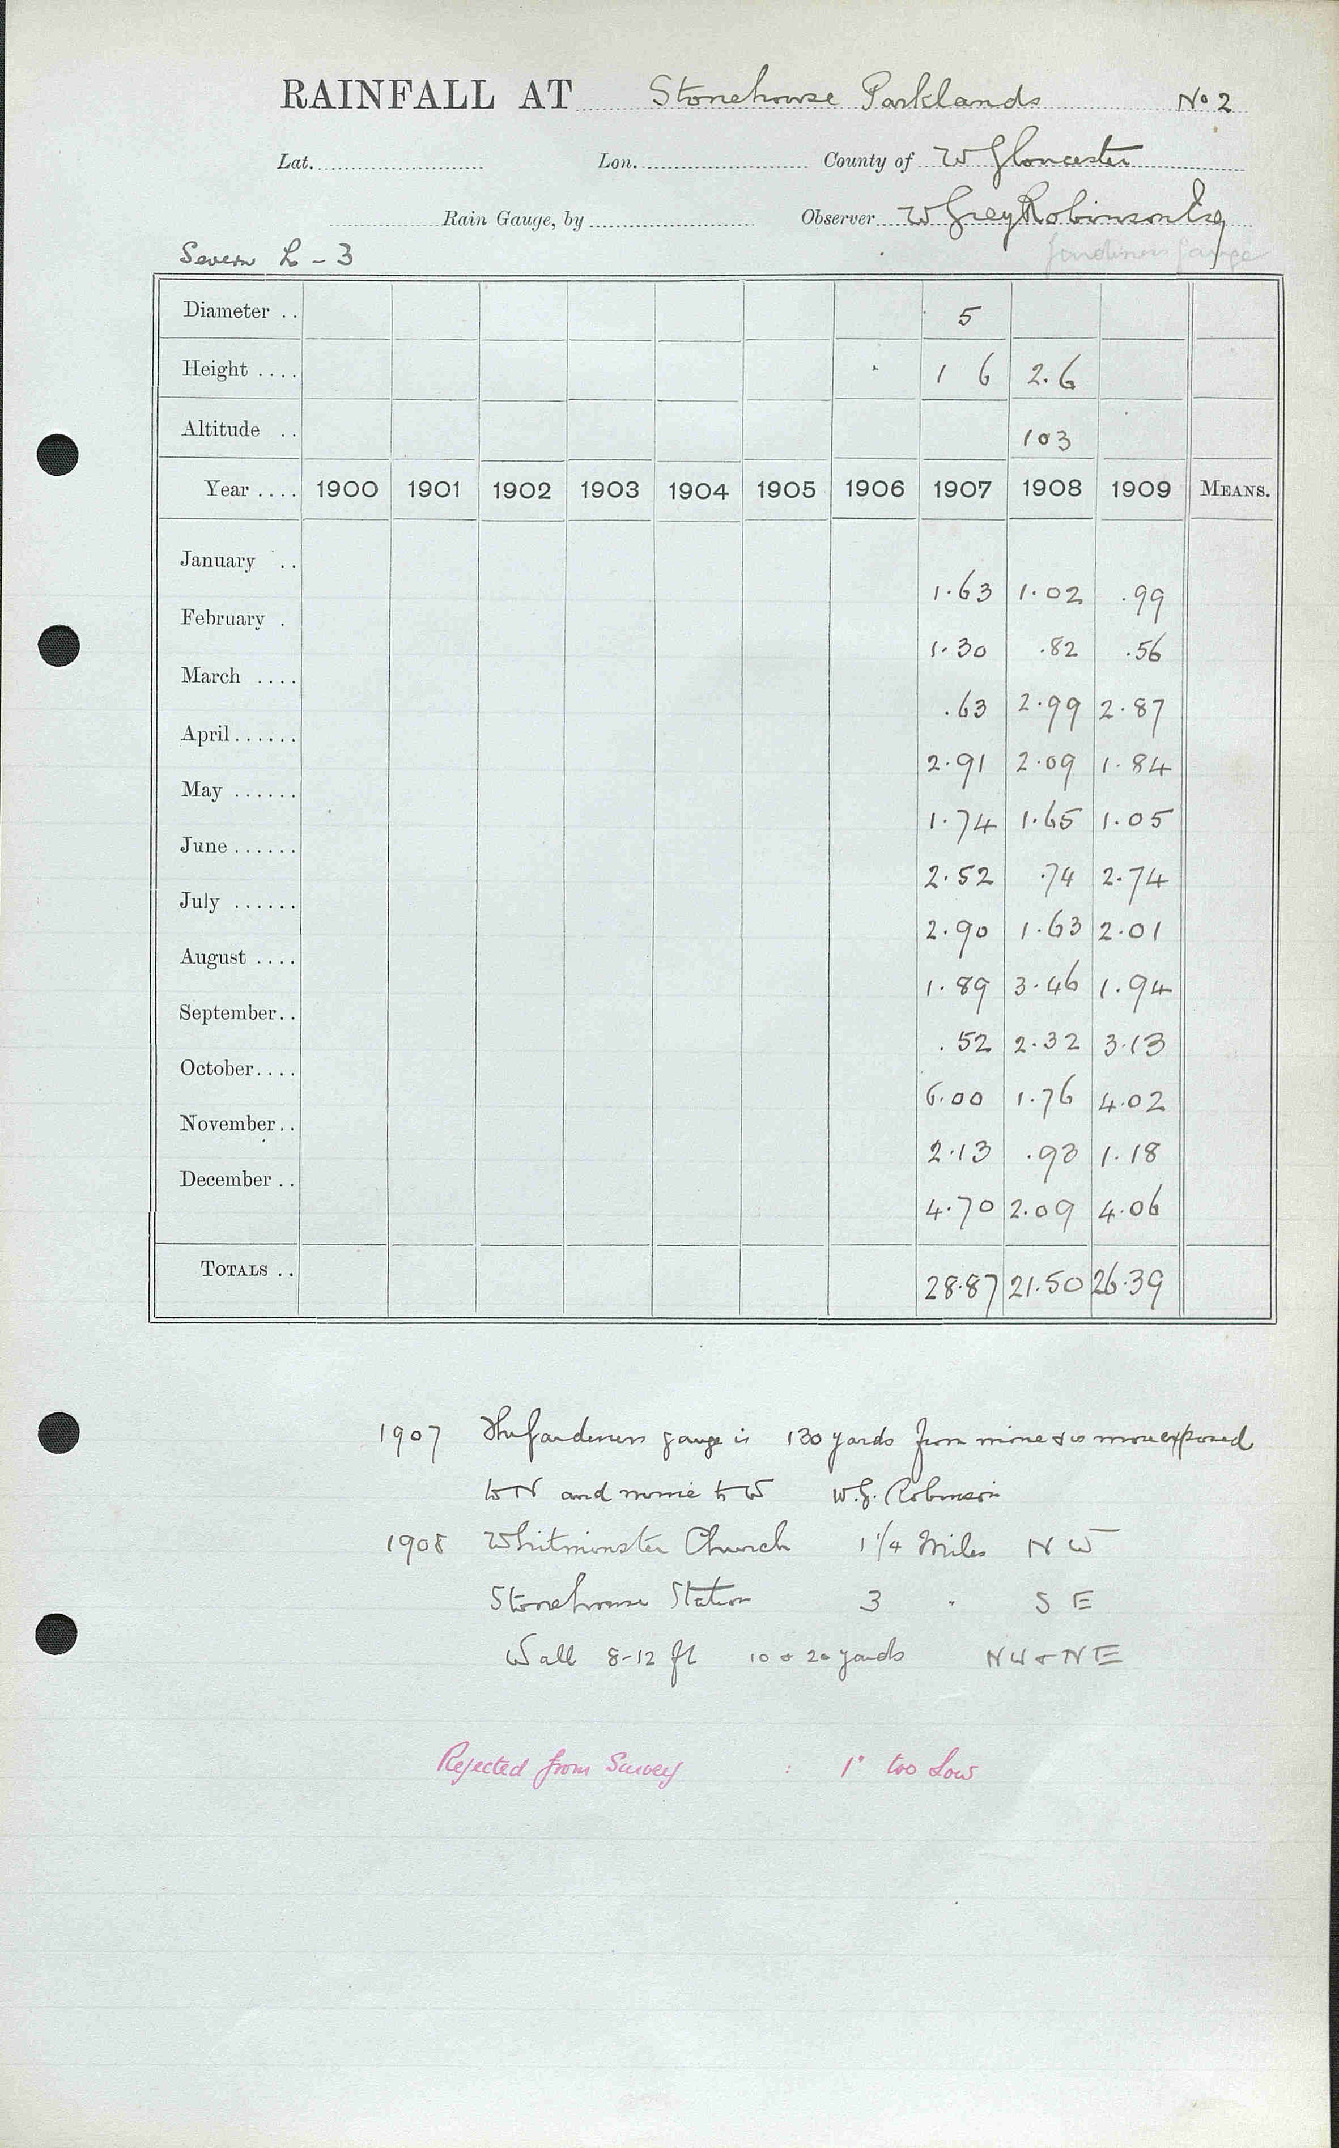 RAINFALL AT Stonehouse Parklands No 2
Lat. Lon. County of W Gloucester
Rain Gauge, by Observer W Grey Robinson Esq
Severn L - 3 Gardiners gauge
Diameter .. 5
Height .... 1 6 2.6
Altitude .. 103
Year .... 1900 1901 1902 1903 1904 1905 1906 1907 1908 1909 MEANS.
January .. 1.63 1.02 .99
February . 1.30 .82 .56
March .... .63 2.99 2.87
April...... 2.91 2.09 1.84
May ...... 1.74 1.65 1.05
June ...... 2.52 .74 2.74
July ...... 2.90 1.63 2.01
August .... 1.89 3.46 1.94
September.. .52 2.32 3.13
October.... 6.00 1.76 4.02
November.. 2.13 .93 1.18
December .. 4.70 2.09 4.06
TOTALS .. 28.87 21.50 26.39
1907 The Gardeners gauge is 130 yards from mine & is more exposed
to N and mine to W W.G. Robinson
1908 Whitminster Church 1 1/4 Miles N W
Stonehouse Station 3 " S E
Wall 8-12 ft 10 & 20 yards NW & NE
Rejected from Survey : 1" too Low